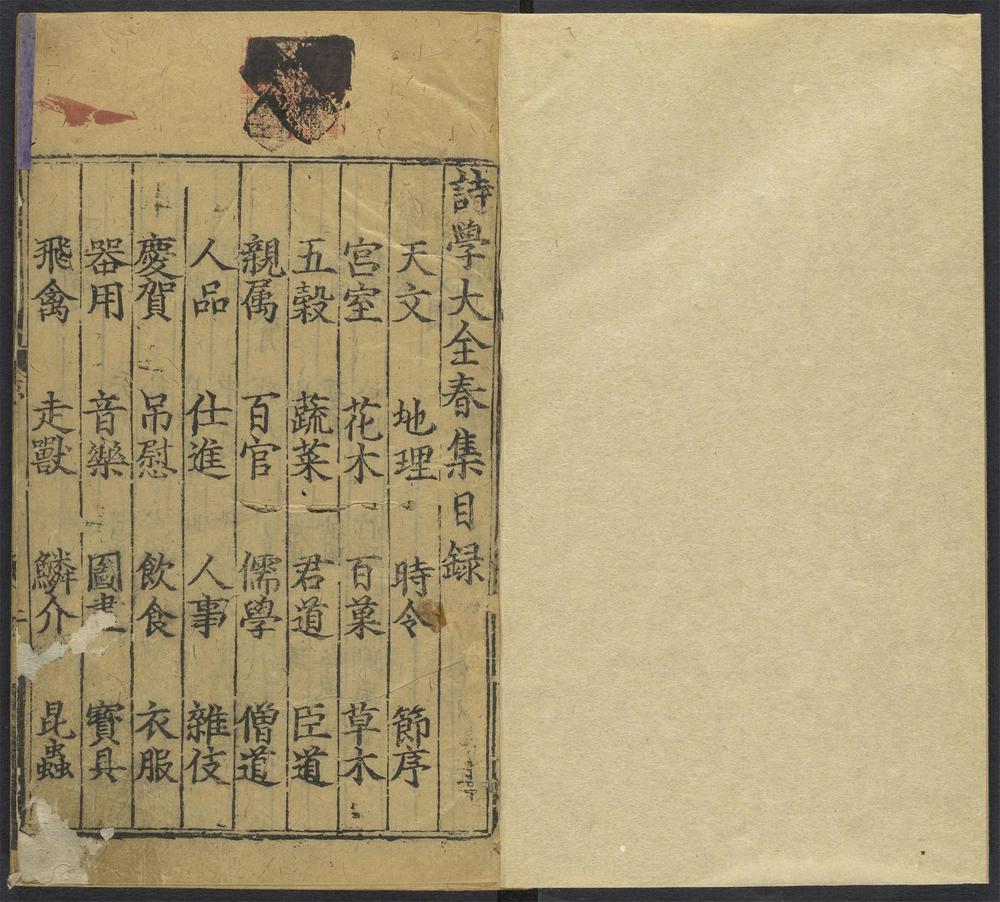 詩學大全春集目録
天文 地理 時令 節序
宮室 花木 百菓 草木
五穀 蔬菜 君道 臣道
親属 百官 儒學 僧道
人品 仕進 人事 雜伎
慶賀 吊慰 飲食 衣服
器用 音樂 圖畫 寳具
飛禽 走獸 鱗介 昆蟲